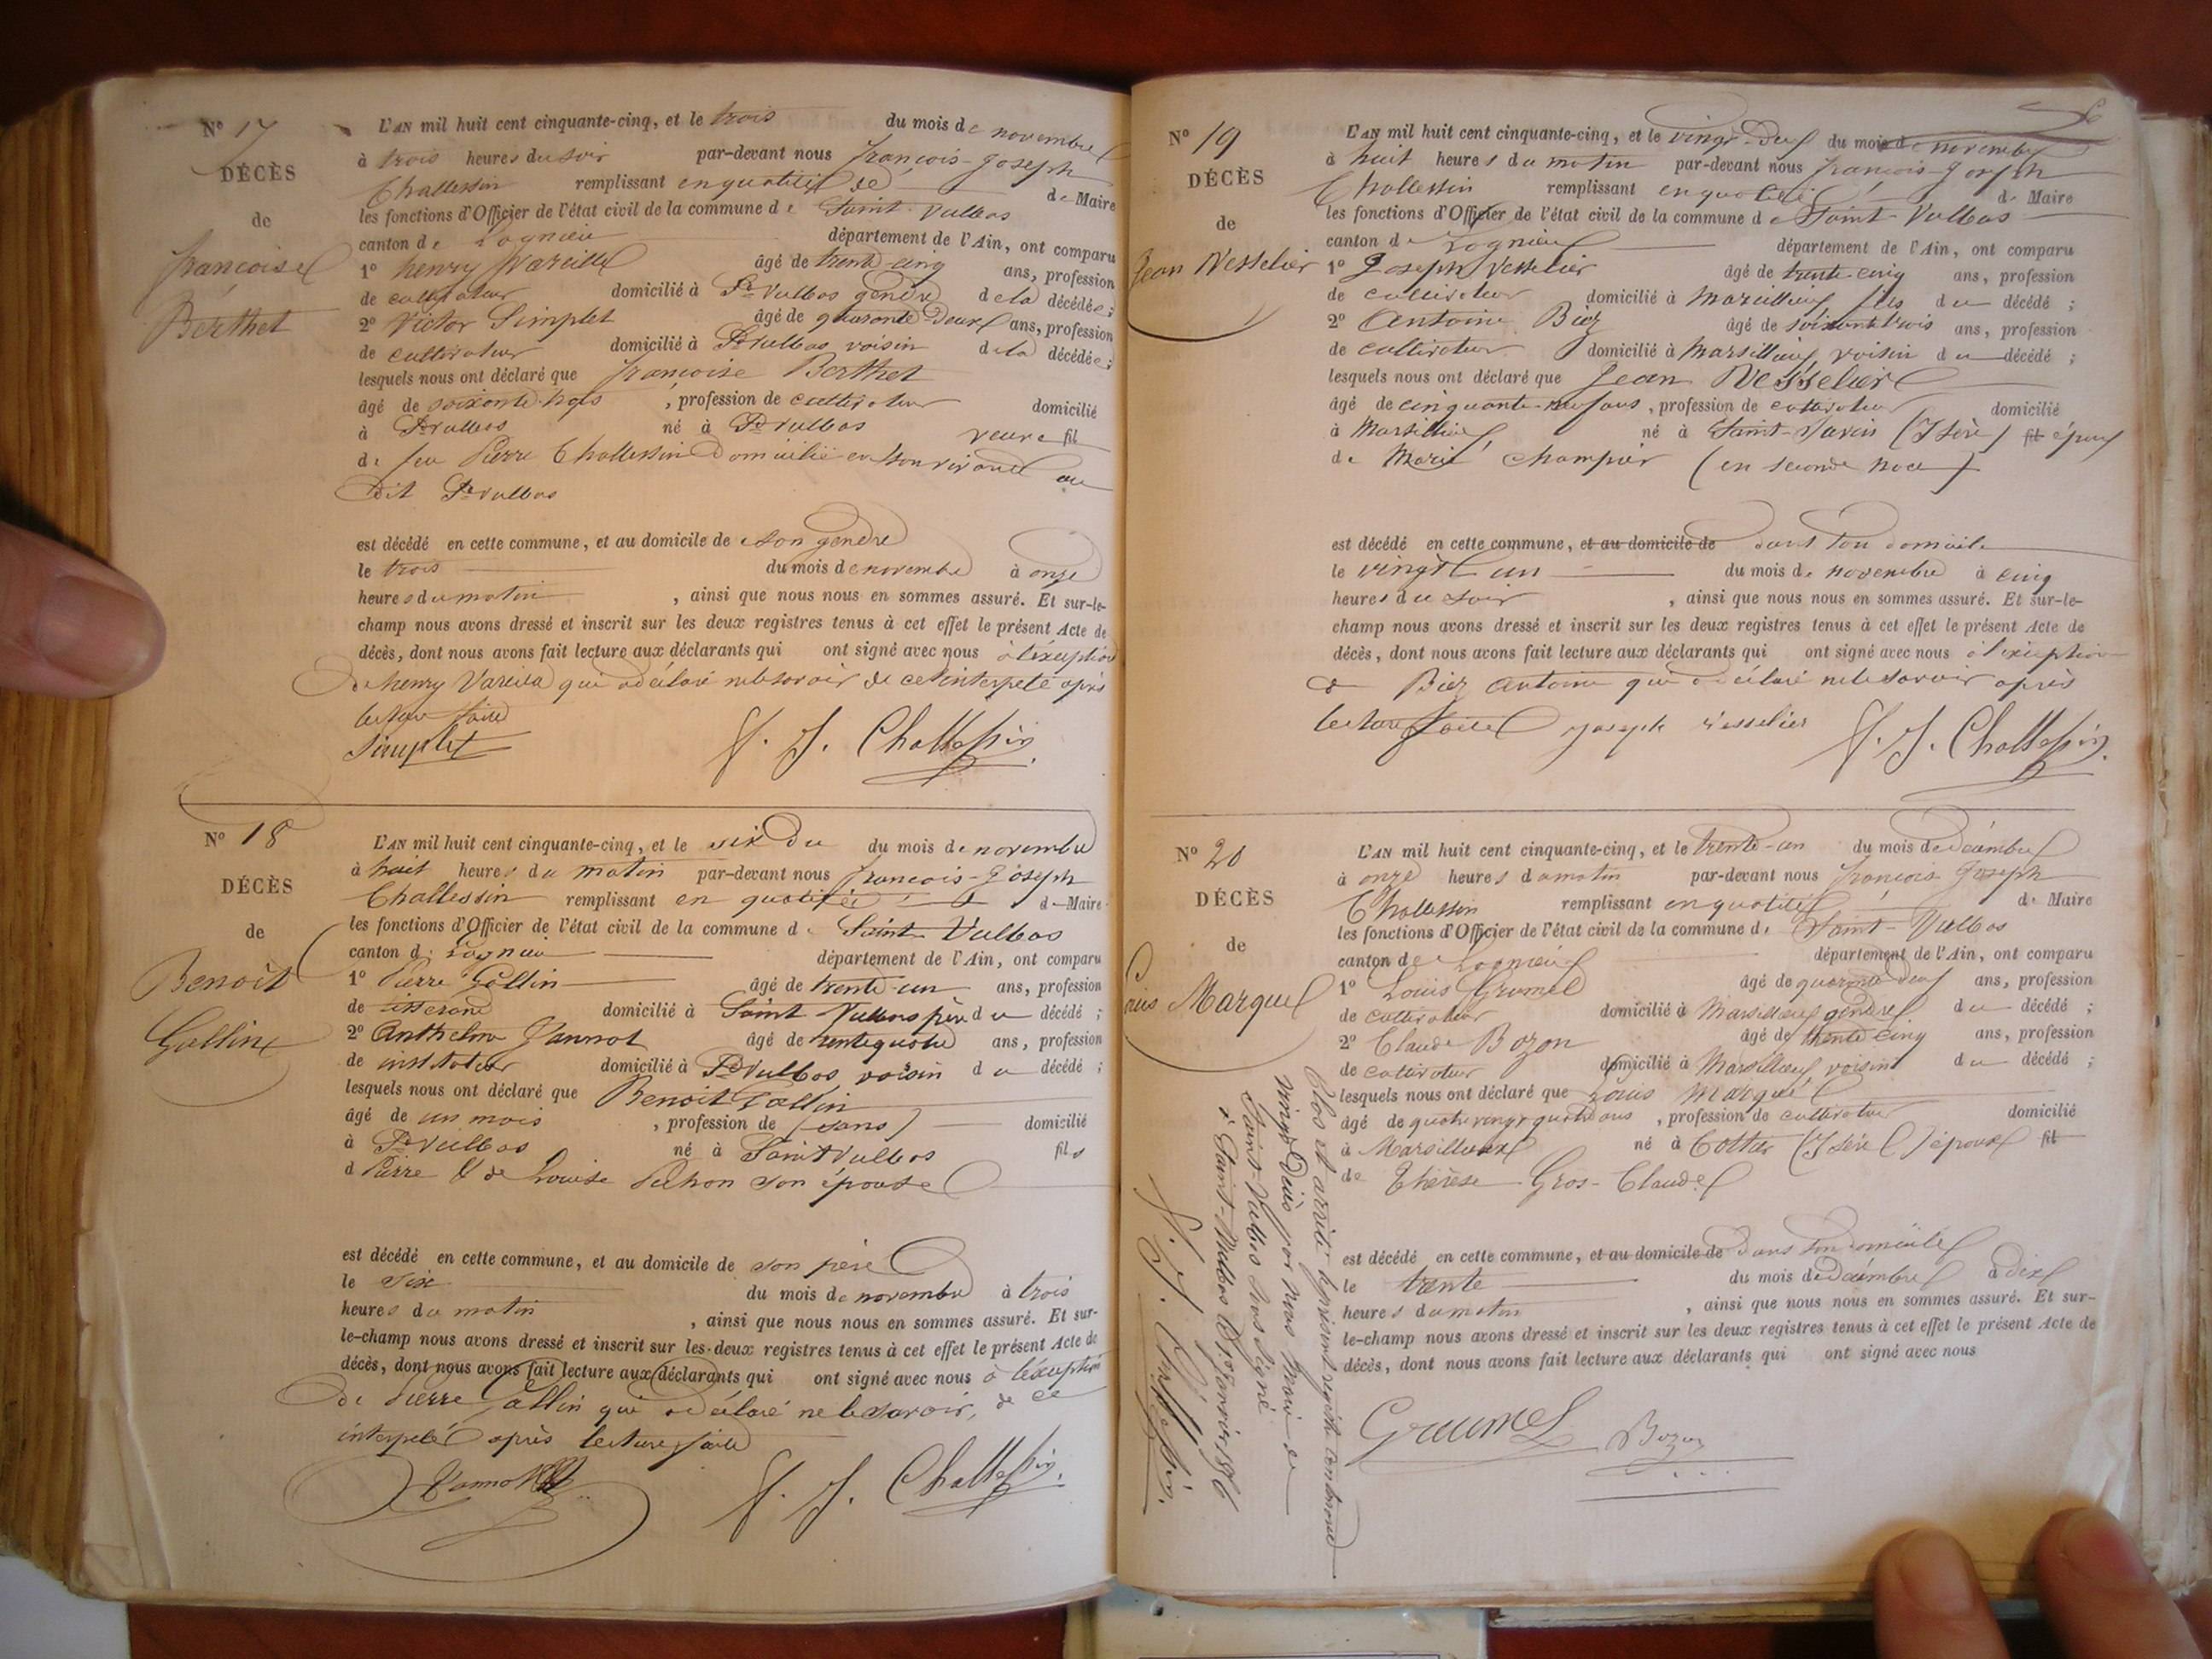 N° 17
DÉCÈS
de
françoise
Berthet
L'AN mil huit cent cinquante-cinq, et le trois du mois de novembre
à trois heures du soir par-devant nous françois-Joseph
Challessin remplissant en qualité de Maire
les fonctions d'Officier de l'état civil de la commune de Saint-Vulbas
canton de Lagnieu département de l'Ain, ont comparu
1° henry Vareille âgé de trente-cinq ans, profession
de cultivateur domicilié à St Vulbas gendre de la décédée;
2° Victor Simplet âgé de quarante deux ans, profession
de cultivateur domicilié à St Vulbas voisin de la décédée;
lesquels nous ont déclaré que françoise Berthet
âgé de soixante-trois , profession de cultivateur domicilié
à St Vulbas né à St Vulbas veuve fil
de feu Pierre Challessin domicilié en son vivant au
dit St Vulbas
est décédé en cette commune, et au domicile de son gendre
le trois du mois de novembre à onze
heures du matin , ainsi que nous nous en sommes assuré. Et sur-le-
champ nous avons dressé et inscrit sur les deux registres tenus à cet effet le présent Acte de
décès, dont nous avons fait lecture aux déclarants qui ont signé avec nous à l'exception
de henry qui a déclaré ne le savoir de ce interpelé après
lecture faite
Simplet F. J. Challessin
N° 18
DÉCÈS
de
Benoît
Gallin
L'AN mil huit cent cinquante-cinq, et le six du du mois de novembre
à huit heures du matin par-devant nous françois-Joseph
Challessin remplissant en qualité de Maire
les fonctions d'Officier de l'état civil de la commune d Saint Vulbas
canton de Lagnieu département de l'Ain, ont comparu
1° Pierre Gallin âgé de trente-un ans, profession
de tisserand domicilié à Saint Vulbas père du décédé ;
2° Anthelme Jannot âgé de trente quatre ans, profession
de instituteur domicilié à St Vulbas voisin du décédé ;
lesquels nous ont déclaré que Benoit Gallin
âgé de un mois , profession de (sans) domicilié
à St Vulbas né à Saint Vulbas fils
d Pierre & de Louise son épouse
est décédé en cette commune, et au domicile de son père
le six du mois de novembre à trois
heures du matin , ainsi que nous nous en sommes assuré. Et sur-
le-champ nous avons dressé et inscrit sur les deux registres tenus à cet effet le présent Acte de
décès, dont nous avons fait lecture aux déclarants qui ont signé avec nous à l'exception
de Pierre Gallin qui a déclaré ne le savoir, de ce
interpelé après lecture faite
Jannot F. J. Challessin
N° 19
DÉCÈS
de
Jean Vesselier
L'AN mil huit cent cinquante-cinq, et le vingt-deux du mois de novembre
à huit heures du matin par-devant nous françois-Joseph
Challessin remplissant en qualité de Maire
les fonctions d'Officier de l'état civil de la commune de Saint-Vulbas
canton de Lagnieu département de l'Ain, ont comparu
1° Joseph Vesselier âgé de trente-cinq ans, profession
de cultivateur domicilié à Marcillieux fils du décédé ;
2° Antoine Biez âgé de soixante trois ans, profession
de cultivateur domicilié à Marsillieux voisin du décédé ;
lesquels nous ont déclaré que Jean Vesselier
âgé de cinquante-neuf ans , profession de cultivateur domicilié
à Marsillieux né à Saint-Savin (Isère) fil époux
de Marie Champier (en seconde noce)
est décédé en cette commune, et au domicile de dans son domicile
le vingt un du mois de novembre à cinq
heures du soir , ainsi que nous nous en sommes assuré. Et sur-le-
champ nous avons dressé et inscrit sur les deux registres tenus à cet effet le présent Acte de
décès, dont nous avons fait lecture aux déclarants qui ont signé avec nous à l'exception
de Biez Antoine qui a déclaré ne le savoir après
lecture faite Joseph Vesselier F. J. Challessin
N° 20
DÉCÈS
de
Louis Marque
L'AN mil huit cent cinquante-cinq, et le trente-un du mois de décembre
à onze heures du matin par-devant nous françois Joseph
Challessin remplissant en qualité de Maire
les fonctions d'Officier de l'état civil de la commune de Saint-Vulbas
canton de Lagnieu département de l'Ain, ont comparu
1° Louis Grumel âgé de quarante deux ans, profession
de cultivateur domicilié à Marsillieux gendre du décédé ;
2° Claude Bozon âgé de trente cinq ans, profession
de cultivateur domicilié à Marsillieux voisin du décédé ;
lesquels nous ont déclaré que Louis Marque
âgé de quatre vingt quatre ans , profession de cultivateur domicilié
à Marsillieux né à (Isère) époux fil
de Thérèse Gros-Claude
est décédé en cette commune, et au domicile de dans son domicile
le trente du mois de décembre à dix
heures du matin , ainsi que nous nous en sommes assuré. Et sur-
le-champ nous avons dressé et inscrit sur les deux registres tenus à cet effet le présent Acte de
décès, dont nous avons fait lecture aux déclarants qui ont signé avec nous
Grumel Bozon
Clos et arrêté le présent registre contenant
vingt Décès par nous Maire de
Saint-Vulbas soussigné
à Saint-Vulbas le 1er Janvier 1856
F. J. Challessin